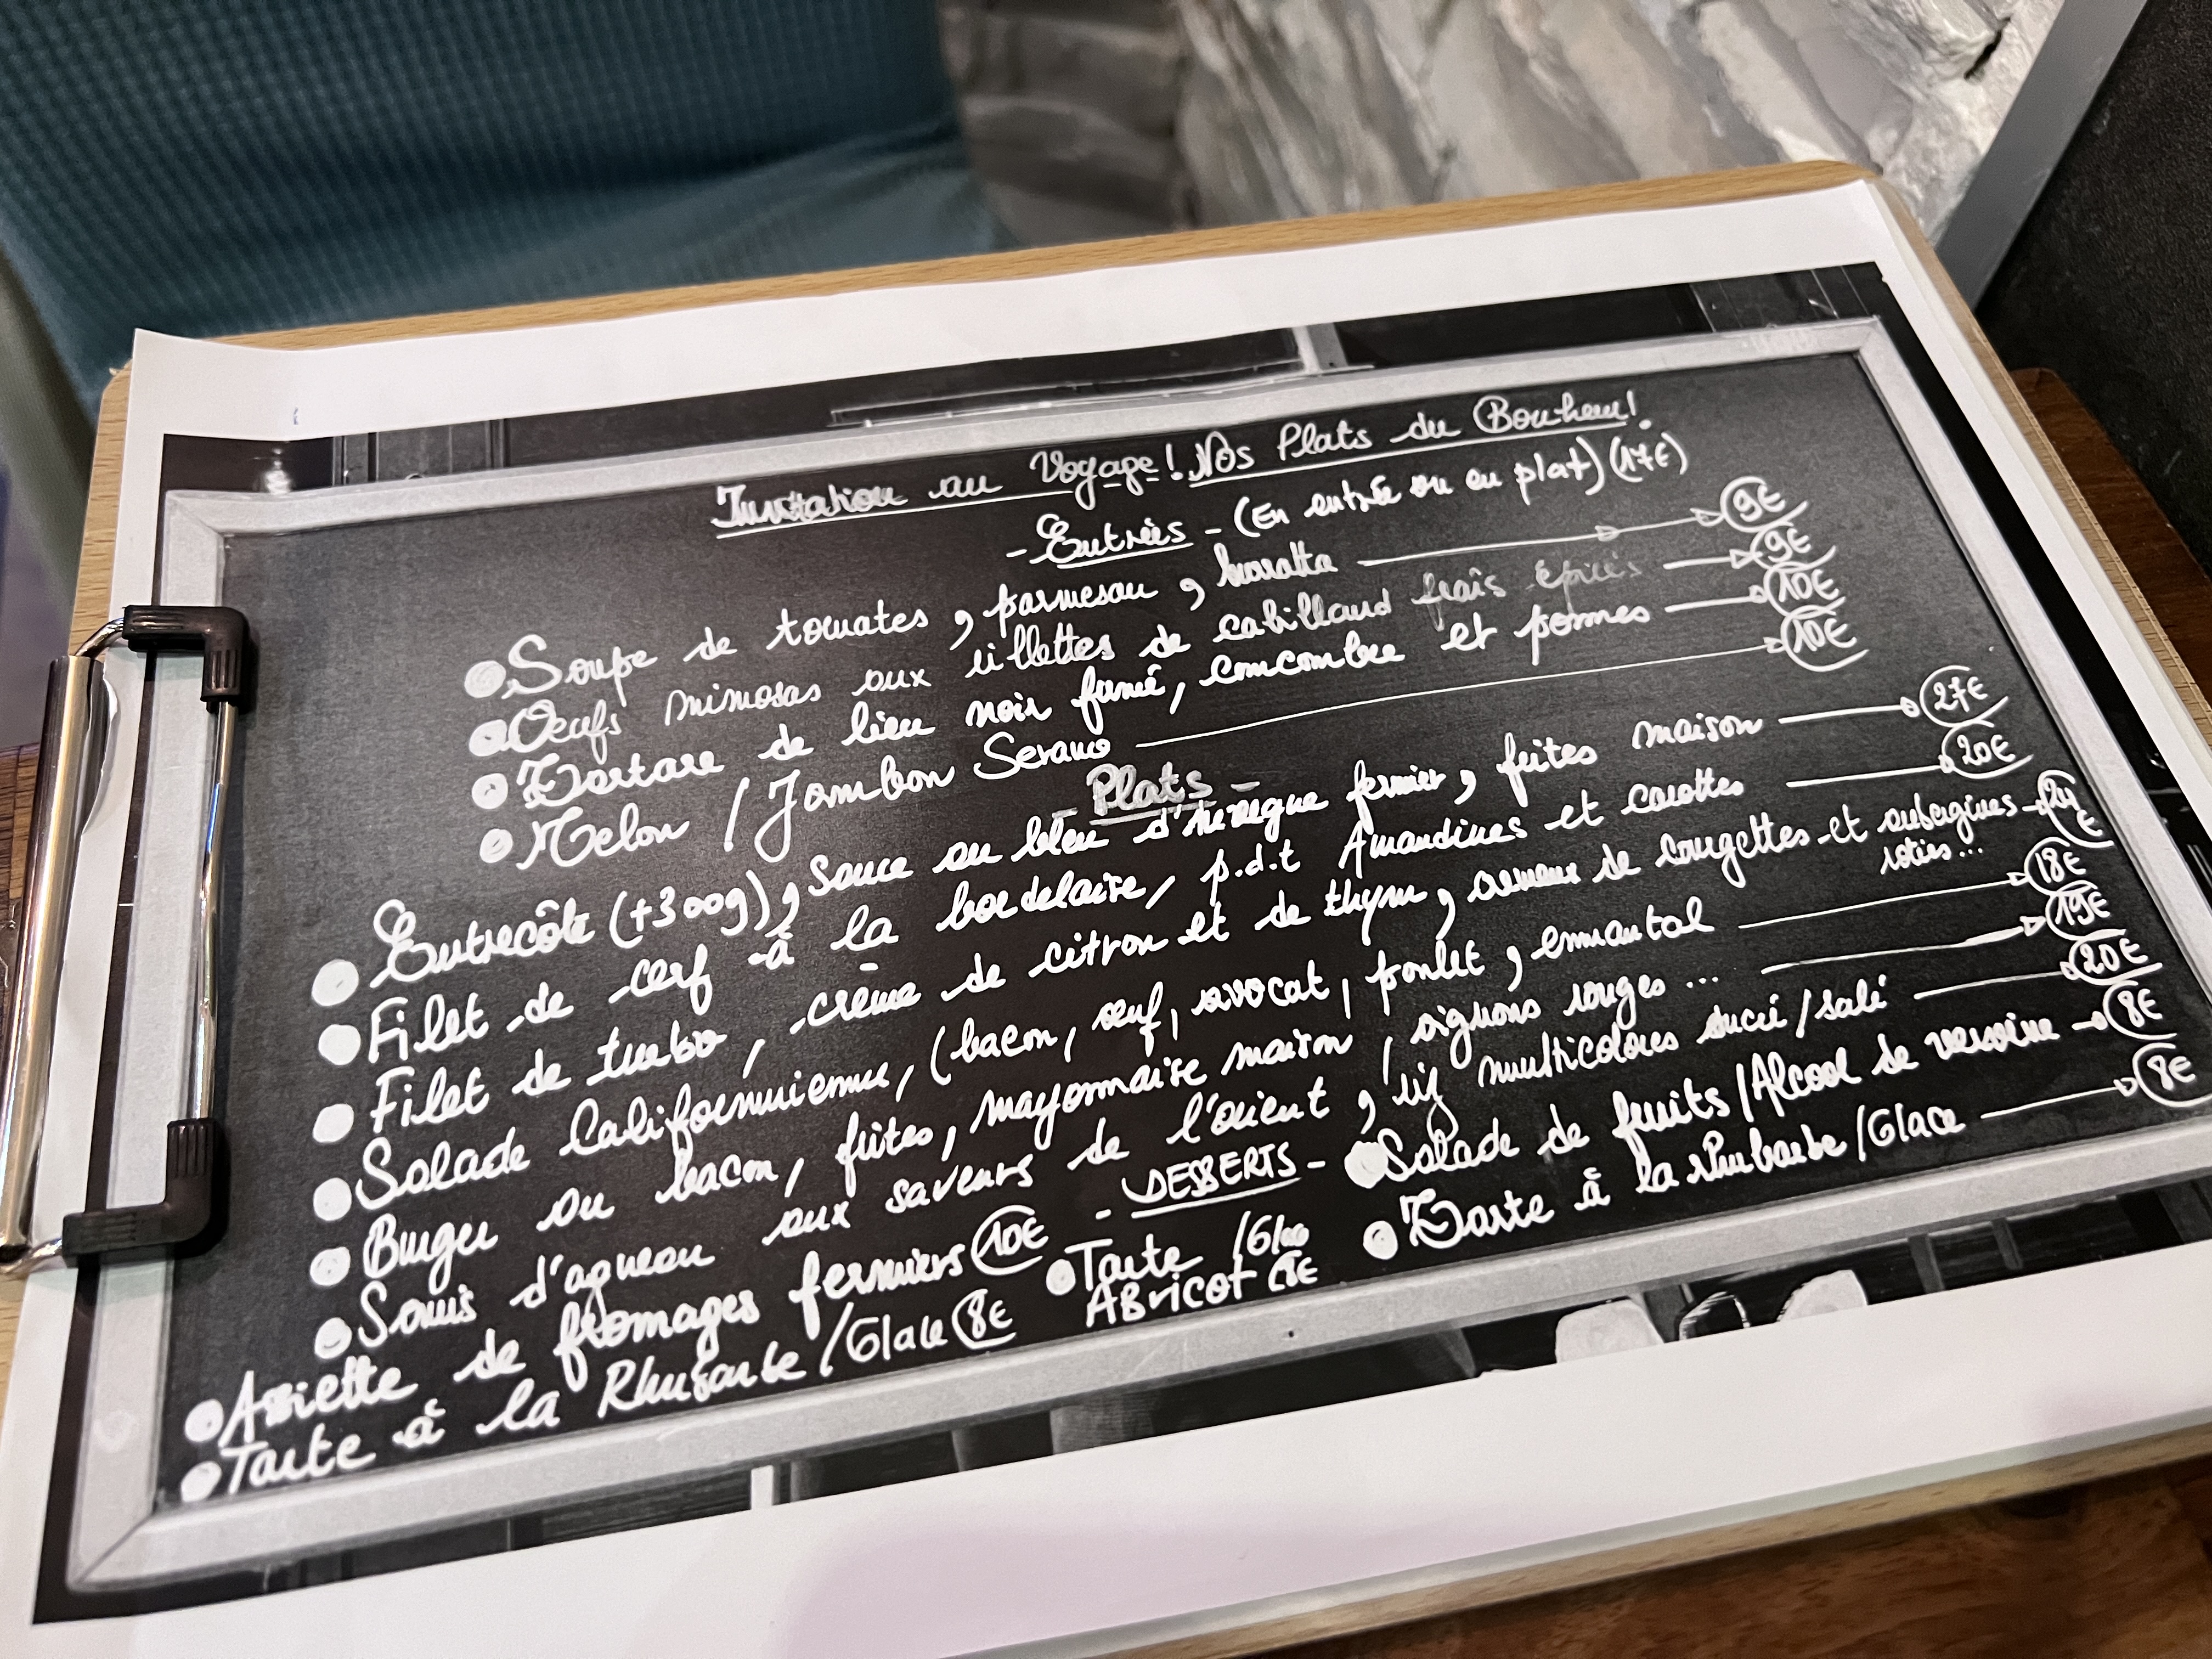 Invitation au Voyage! Nos Plats du Bonheur!
- Entrées - (En entrée ou en plat) (17€)
Soupe de tomates, parmesan, burratta 9€
Oeufs mimosas aux rillettes de cabillaud frais épicés 9€
Tartare de lieu noir fumé, concombre et pommes 10€
Melon / Jambon Serano 10€
- Plats -
Entrecôte (+300g), Sauce au bleu d'Auvergne fermier, frites maison 27€
Filet de cerf à la bordelaise, p.d.t Amandines et carottes 20€
Filet de turbo, crème de citron et de thym, de courgettes et aubergines 24€
roties...
Salade Californnienne, (bacon, œuf, avocat, poulet, emmental 18€
Burger au bacon, frites, mayonnaise maison, oignons rouges ... 19€
Souris d'agneau aux saveurs de l'orient, riz multicolores sucré/salé 20€
- DESSERTS -
Salade de fruits/Alcool de verveine 8€
Assiette de fromages fermiers 10€
Tarte /Glace
Abricot 8€
Tarte à la rhubarbe/Glace 8€
Tarte à la Rhubarbe/Glace 8€